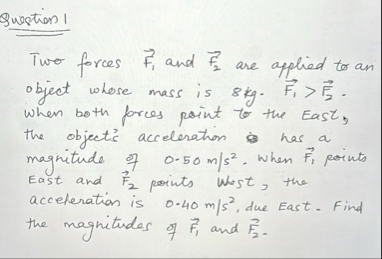 Question 1
Two forces F⃗₁ and F⃗₂ are applied to an
object whose mass is 8kg. F⃗₁ > F⃗₂.
When both forces point to the East,
the object's acceleration has a
magnitude of 0.50 m/s². When F⃗₁ points
East and F⃗₂ points West, the
acceleration is 0.40 m/s², due East. Find
the magnitudes of F⃗₁ and F⃗₂.